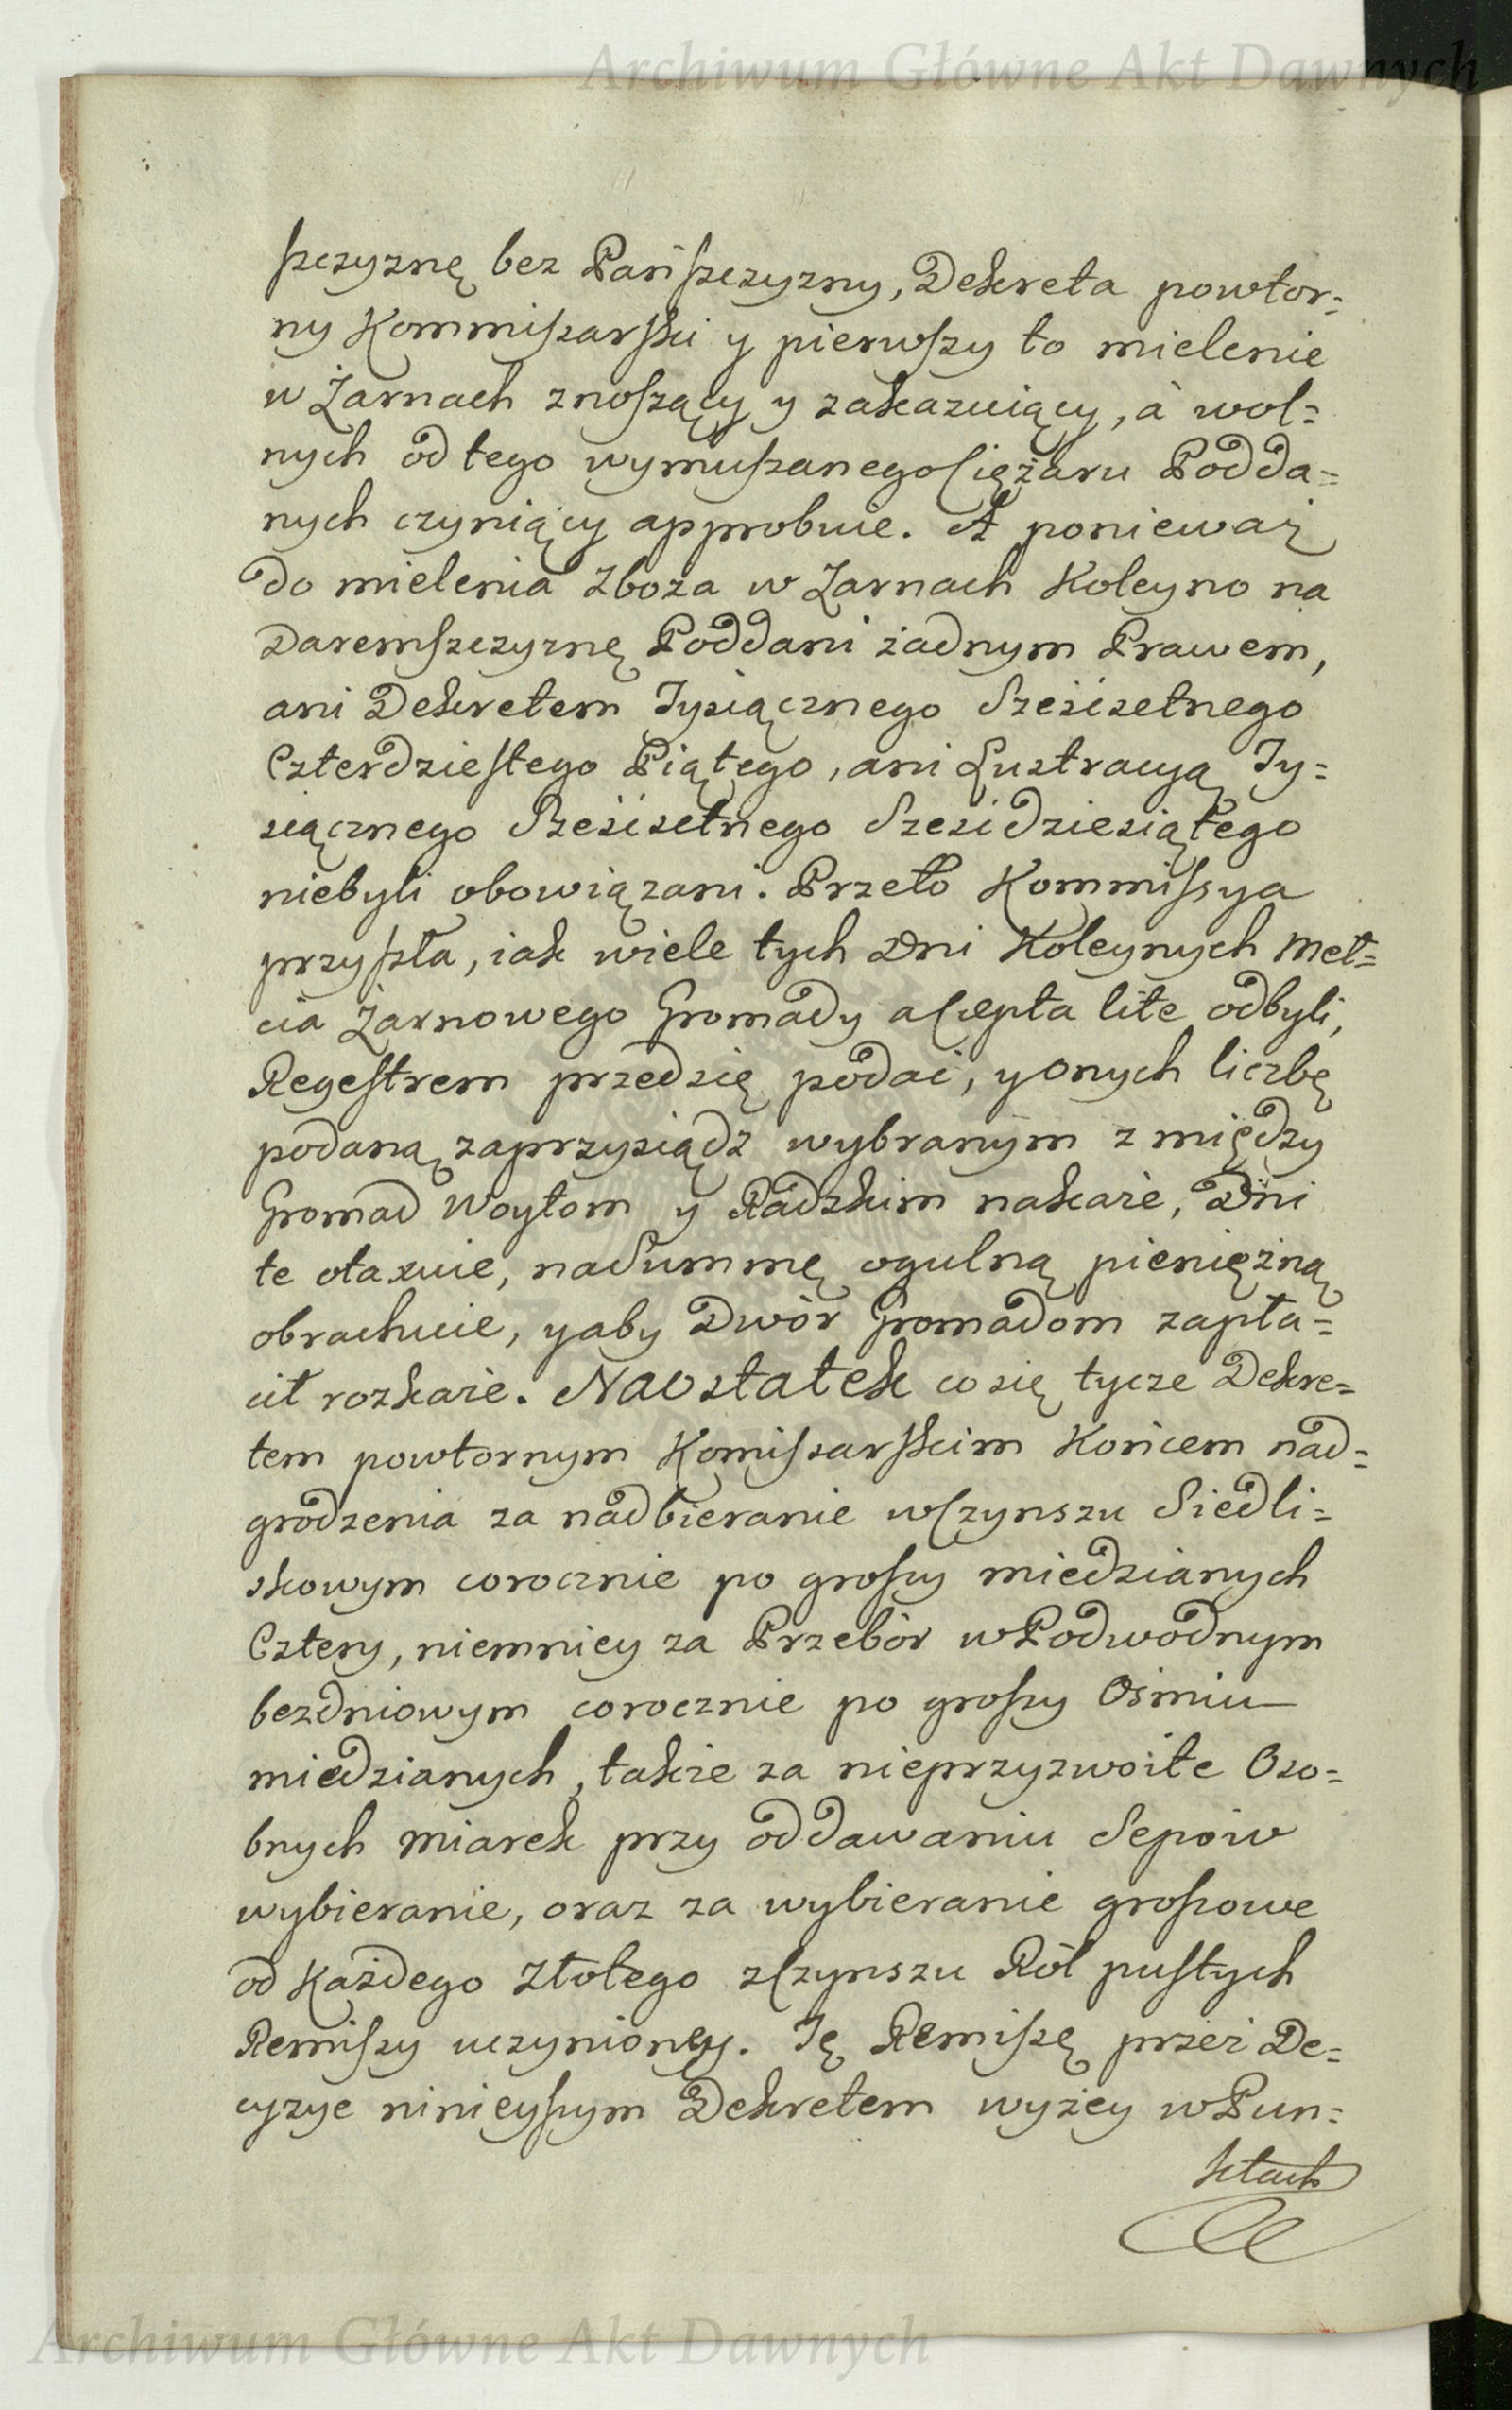 Archiwum Główne Akt Dawnych
szczyznę bez Pańszczyzny, Dekreta powtor=
ny Kommiszarski y pierwszy to mielenie
w Żarnach znoszący y zakazuiący, à wol=
nych od tego wymuszanego Ciężaru Podda=
nych czyniący approbuie. A ponieważ
do mielenia Zboża w Żarnach Koleyno na
Daremszczyznę Poddani żadnym Prawem,
ani Dekretem Tysiącznego Sześćsetnego
Czterdziestego Piątego, ani Lustracyą Ty=
siącznego Sześćsetnego Sześćdziesiątego
niebyli obowiązani. Przeto Kommissya
przyszła, iak wiele tych Dni Koleynych Mel=
cia Żarnowego Gromady a Cepta lite odbyli,
Regestrem przed się podać, y onych liczbę
podaną zaprzysiądz wybranym z między
Gromad Woytom y Radzkim nakaże, Dni
te otaxuie, na Summę ogulną pieniężną
obrachuie, y aby Dwór Gromadom zapła=
cił rozkaże. Naostatek co się tycze Dekre=
tem powtornym Komiszarskim Końcem nad=
grodzenia za nadbieranie w Czynszu Siedli=
skowym corocznie po groszy miedzianych
Cztery, niemniey za Przebór w Podwodnym
bezdniowym corocznie po groszy Ośmiu
miedzianych, także za nieprzyzwoite Oso=
bnych miarek przy oddawaniu Sepów
wybieranie, oraz za wybieranie groszowe
od Każdego Złotego z Czynszu Ról pustych
Remiszy uczynioney. Tę Remiszę przez De=
cyzye ninieyszym Dekretem wyżey w Pun=
ktach
Archiwum Główne Akt Dawnych